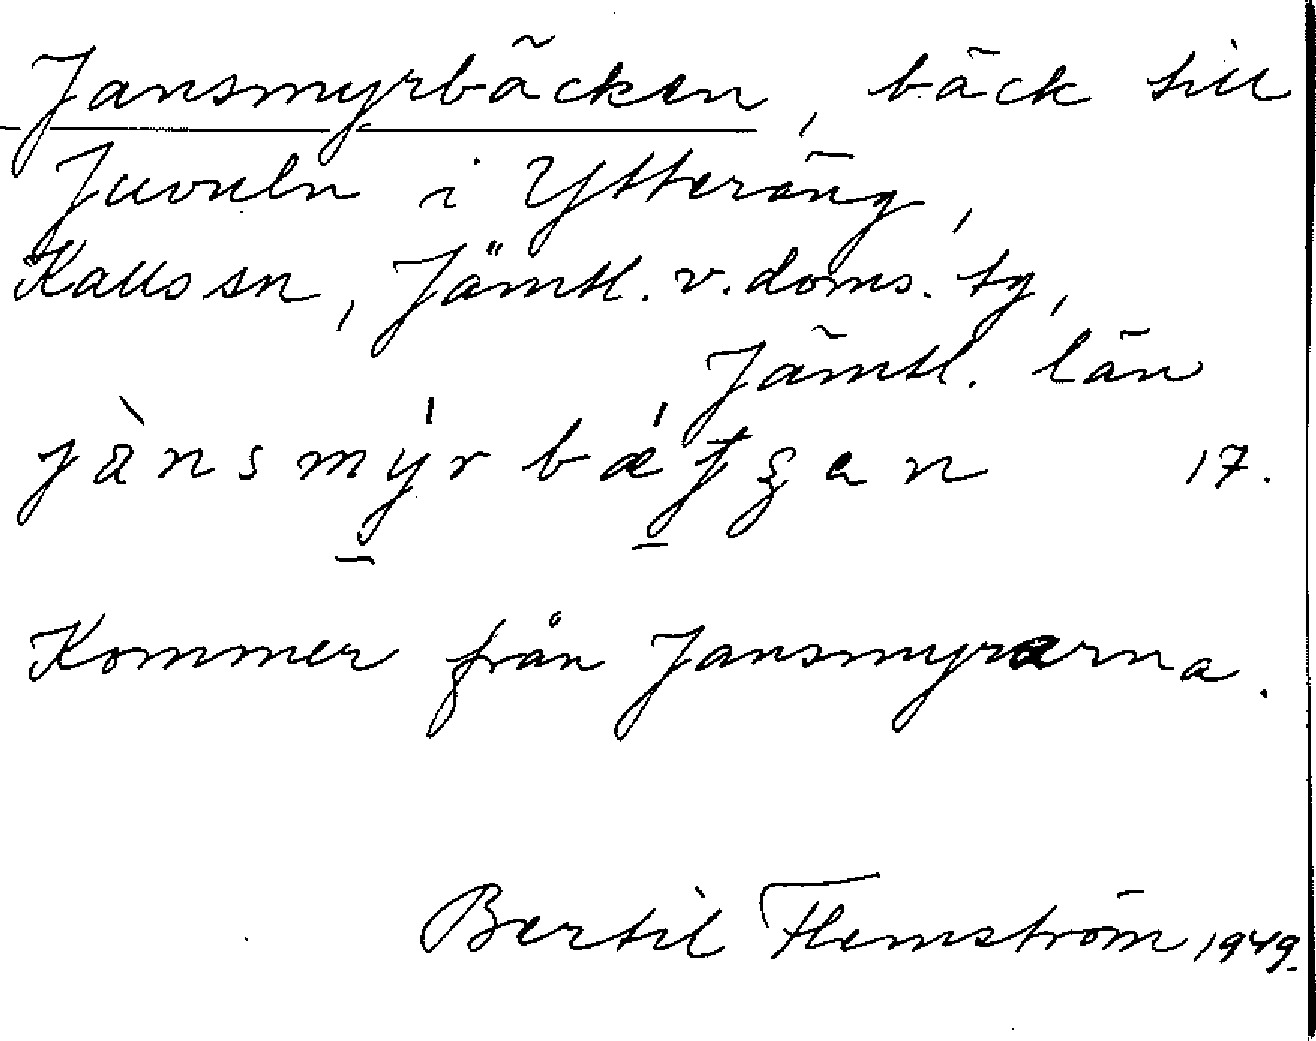 Jansmyrbäcken, bäck till
Juveln i Ytteräng,
Kalls sn, Jämtl. v. doms. tg,
Jämtl. län
17.
Kommer från Jansmyrarna.
Bertil Flemström 1949.